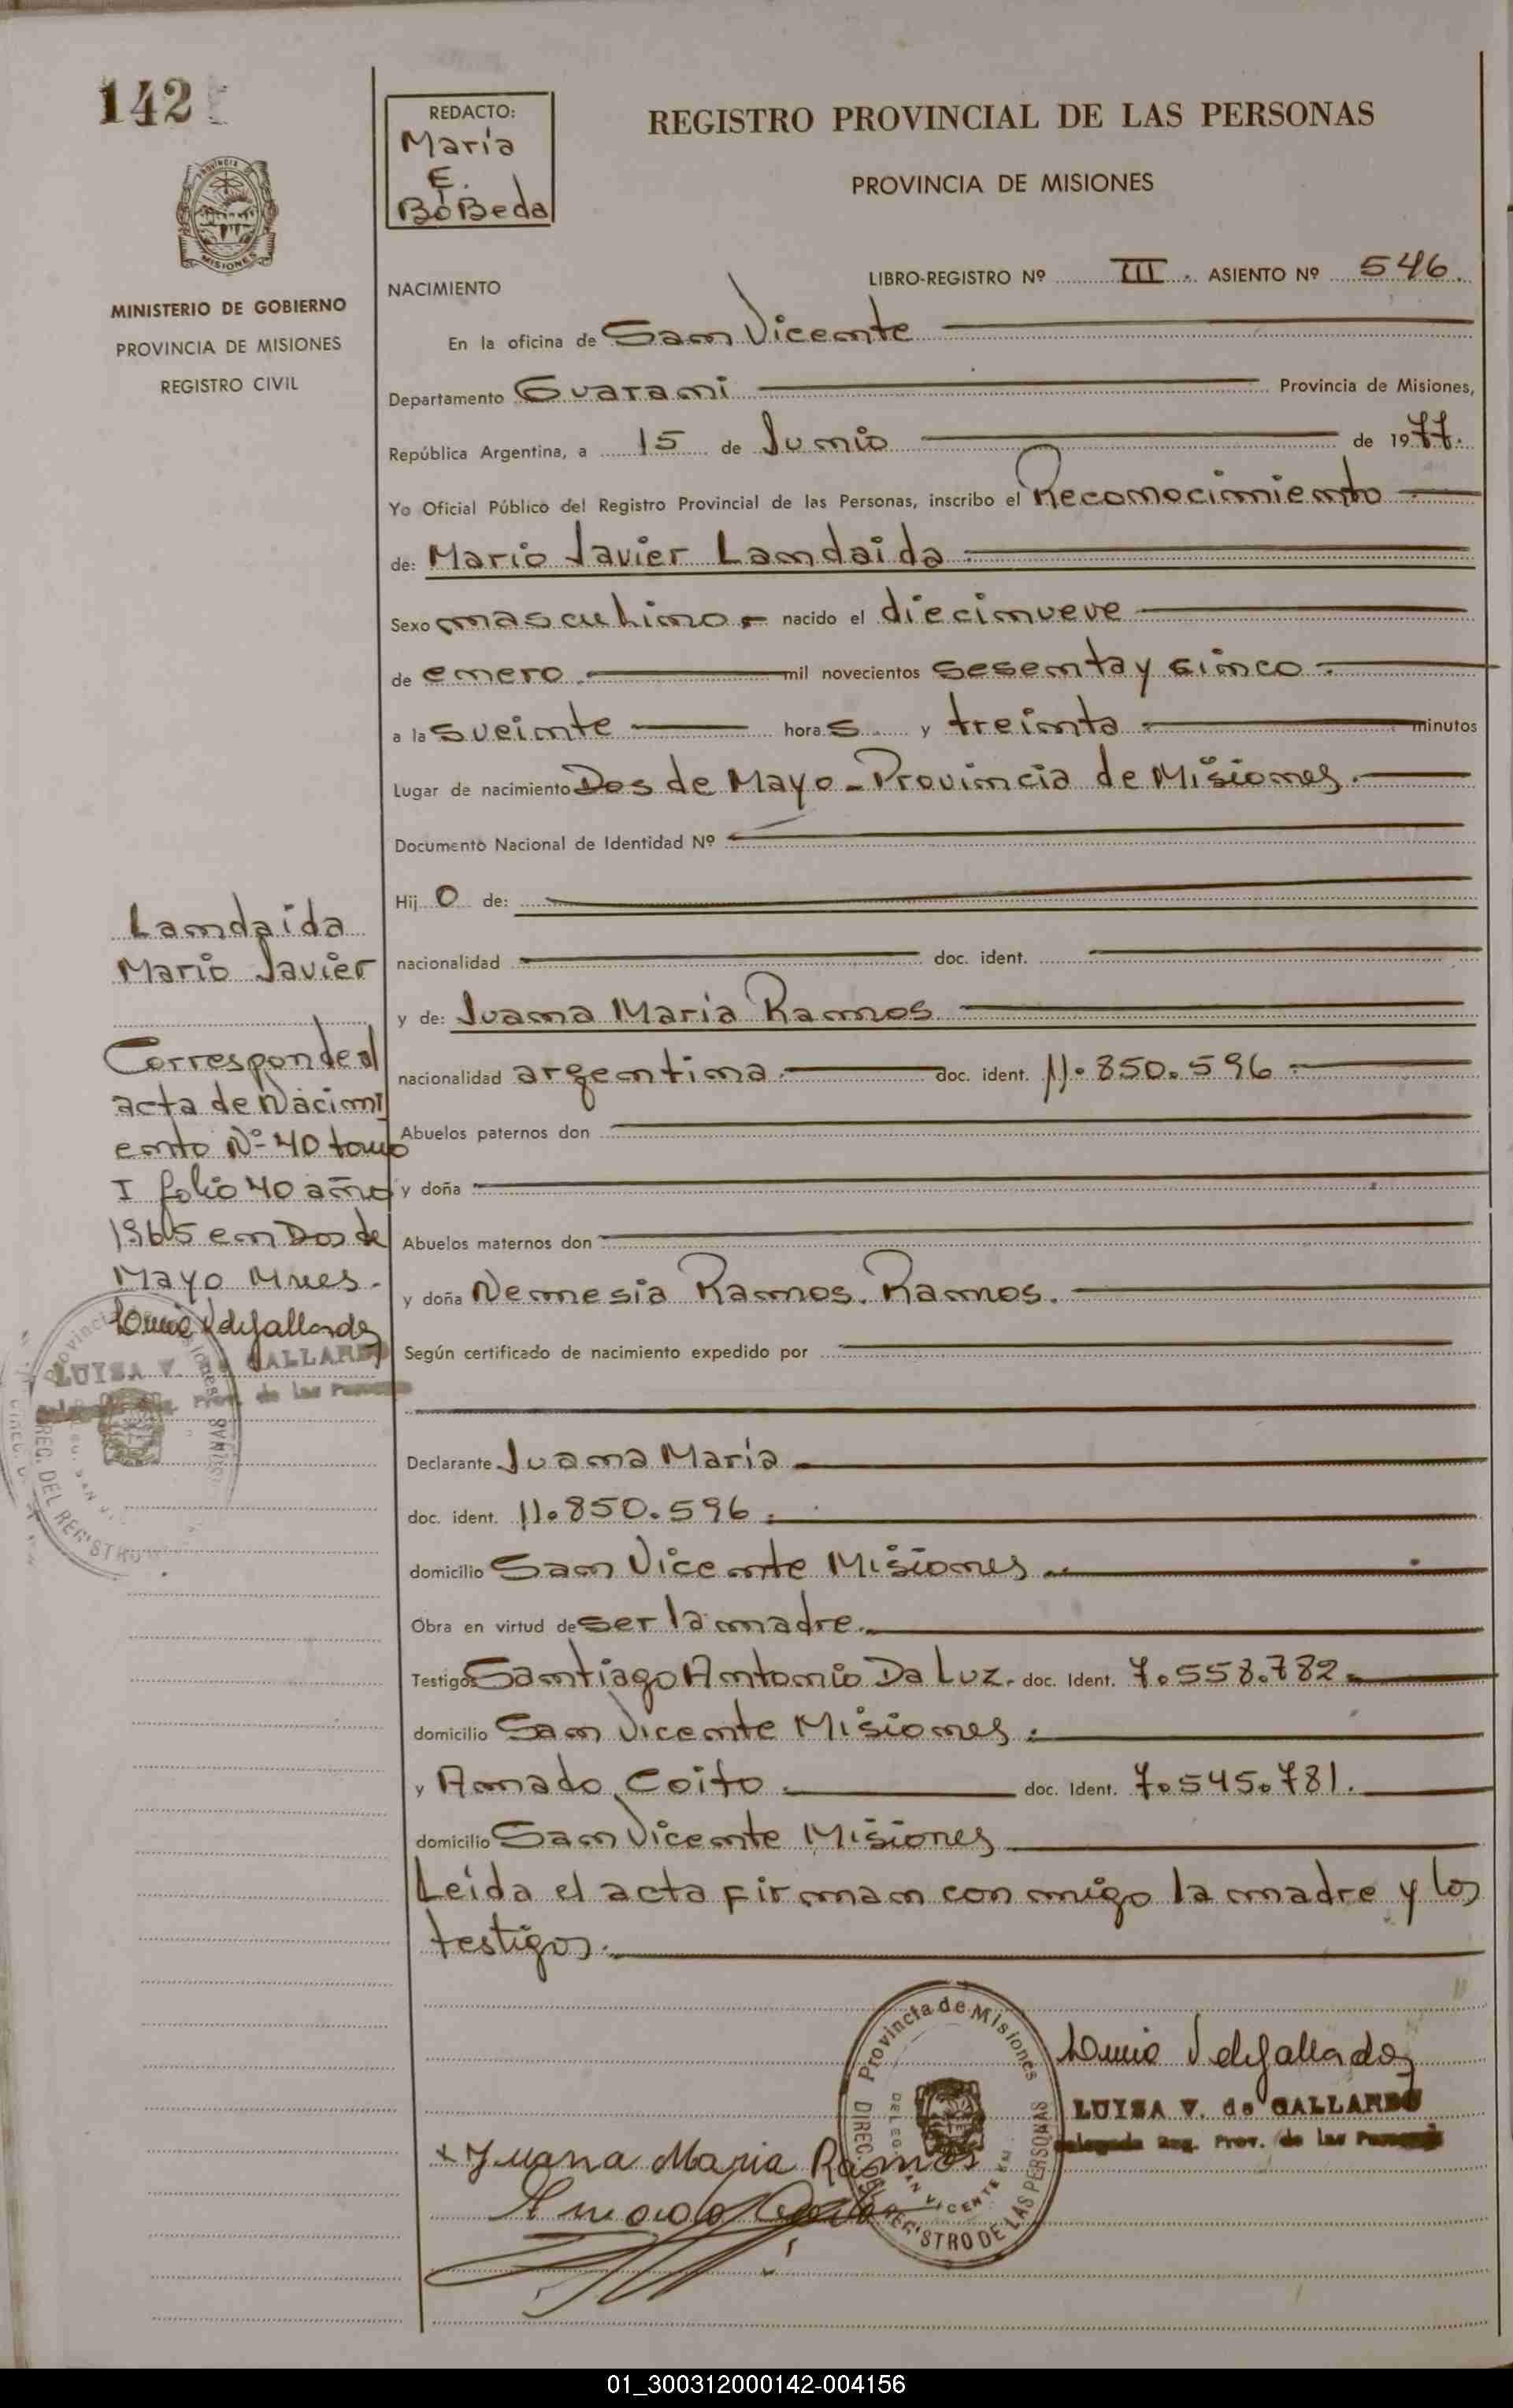 142
REDACTO:
María
E.
BóBeda
REGISTRO PROVINCIAL DE LAS PERSONAS
PROVINCIA DE MISIONES
PROVINCIA
MISIONES
MINISTERIO DE GOBIERNO
PROVINCIA DE MISIONES
REGISTRO CIVIL
NACIMIENTO
LIBRO-REGISTRO Nº III. ASIENTO Nº 546.
En la oficina de San Vicente
Departamento Guarani Provincia de Misiones,
República Argentina, a 15 de Junio de 1977.
Yo Oficial Público del Registro Provincial de las Personas, inscribo el Reconocimiento
de: Mario Javier Landaida
Sexo masculino nacido el diecinueve
de enero mil novecientos sesenta y cinco.
a las veinte horas y treinta minutos
Lugar de nacimiento Dos de Mayo - Provincia de Misiones.
Documento Nacional de Identidad Nº
Hijo de:
nacionalidad doc. ident.
y de: Juana Maria Ramos
nacionalidad argentina. doc. ident. 11.850.596
Abuelos paternos don
y doña
Abuelos maternos don
y doña Nemesia Ramos. Ramos.
Según certificado de nacimiento expedido por
Declarante Juana María
doc. ident. 11.850.596
domicilio San Vicente Misiones
Obra en virtud de ser la madre.
Testigos Santiago Antonio Da Luz. doc. Ident. 7.558.782
domicilio San Vicente Misiones
y Amado Coito. doc. Ident. 7.545.781.
domicilio San Vicente Misiones
Leída el acta firman con migo la madre y los
testigos.
Landaida
Mario Javier
Corresponde al
acta de Nacimi
ento Nº 40 tomo
I folio 40 año
1965 en Dos de
Mayo Mnes.
LUISA V. de GALLARDO
Delegada Reg. Prov. de las Personas
REG. DEL REGISTRO
Provincia de Misiones
DIREC. REGISTRO DE LAS PERSONAS
SAN VICENTE
LUISA V. de GALLARDO
Delegada Reg. Prov. de las Personas
x Juana Maria Ramos
01_300312000142-004156